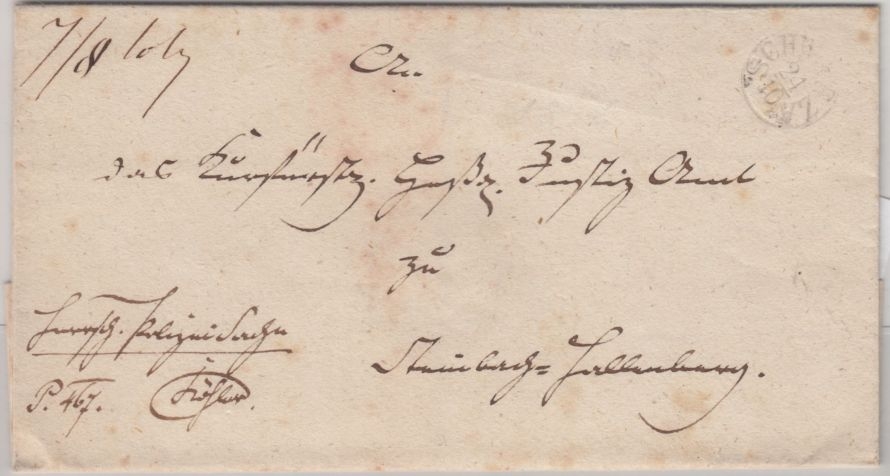 7/8 loth
An
das Kurfürstl. Hess. Justiz Amt
zu
Steinbach=Hallenberg.
Herrsch. Polizei Sache
P. 467. Köhler.
21
10